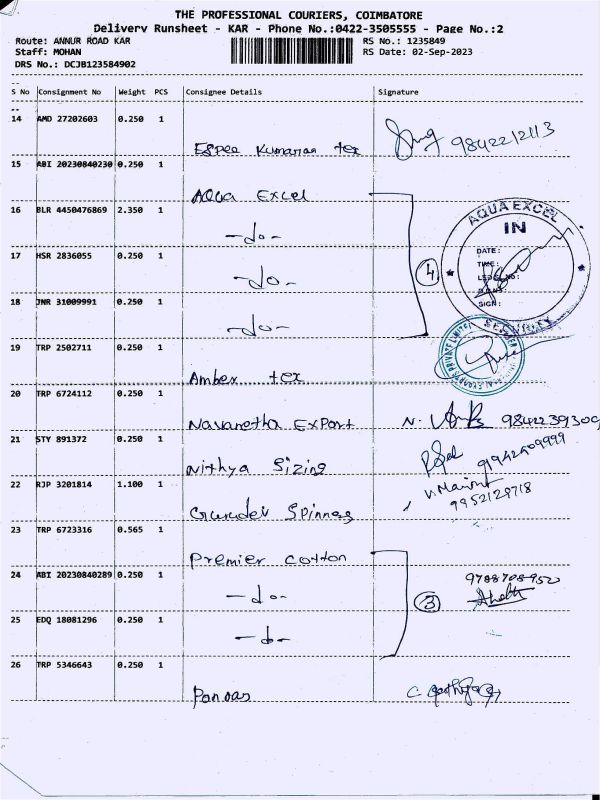 THE PROFESSIONAL COURIERS, COIMBATORE
Delivery Runsheet - KAR - Phone No.:0422-3505555 - Page No.:2
Route: ANNUR ROAD KAR RS No.: 1235849
Staff: MOHAN RS Date: 02-Sep-2023
DRS No.: DCJB123584902
S No Consignment No Weight PCS Consignee Details Signature
14 AMD 27202603 0.250 1
Espee Kumaran tex 9842212113
15 ABI 20230840230 0.250 1
Aqua Excel
16 BLR 4450476869 2.350 1
-do-
17 HSR 2836055 0.250 1
-do-
18 JNR 31009991 0.250 1
-do-
4
AQUA EXCEL
IN
DATE:
TIME:
SIGN:
SECURITY
19 TRP 2502711 0.250 1
Amber tex
PRIVATE LIMITED
20 TRP 6724112 0.250 1
Navanetha Export N.
21 STY 891372 0.250 1
Nithya Sizing
22 RJP 3201814 1.100 1
Gurudev Spinners 9952129718
23 TRP 6723316 0.565 1
Premier cotton
24 ABI 20230840289 0.250 1
-do- 3 9788708952
25 EDQ 18081296 0.250 1
-do-
26 TRP 5346643 0.250 1